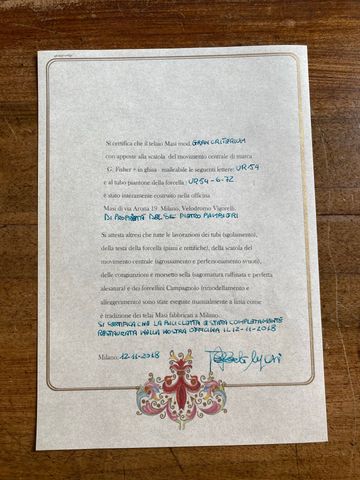 Si certifica che il telaio Masi mod. GRAN CRITERIUM
con apposte alla scatola del movimento centrale di marca
G. Fisher + in ghisa malleabile le seguenti lettere: UR·54
e al tubo piantone della forcella: UR54-6-72
è stato interamente costruito nella officina
Masi di via Arona 19 Milano, Velodromo Vigorelli.
DI PROPRIETÀ DEL SIG PIETRO
Si attesta altresì che tutte le lavorazioni dei tubi (sgolamento),
della testa della forcella (piani e rettifiche), della scatola del
movimento centrale (sgrossamento e perfezionamento vuoti),
delle congiunzioni e morsetto sella (sagomatura raffinata e perfetta
alesatura) e dei forcellini Campagnolo (rimodellamento e
alleggerimento) sono state eseguite manualmente a lima come
è tradizione dei telai Masi fabbricati a Milano.
SI CERTIFICA CHE LA BICICLETTA È STATA COMPLETAMENTE
RESTAURATA NELLA NOSTRA OFFICINA IL 12-11-2018
Milano, 12-11-2018